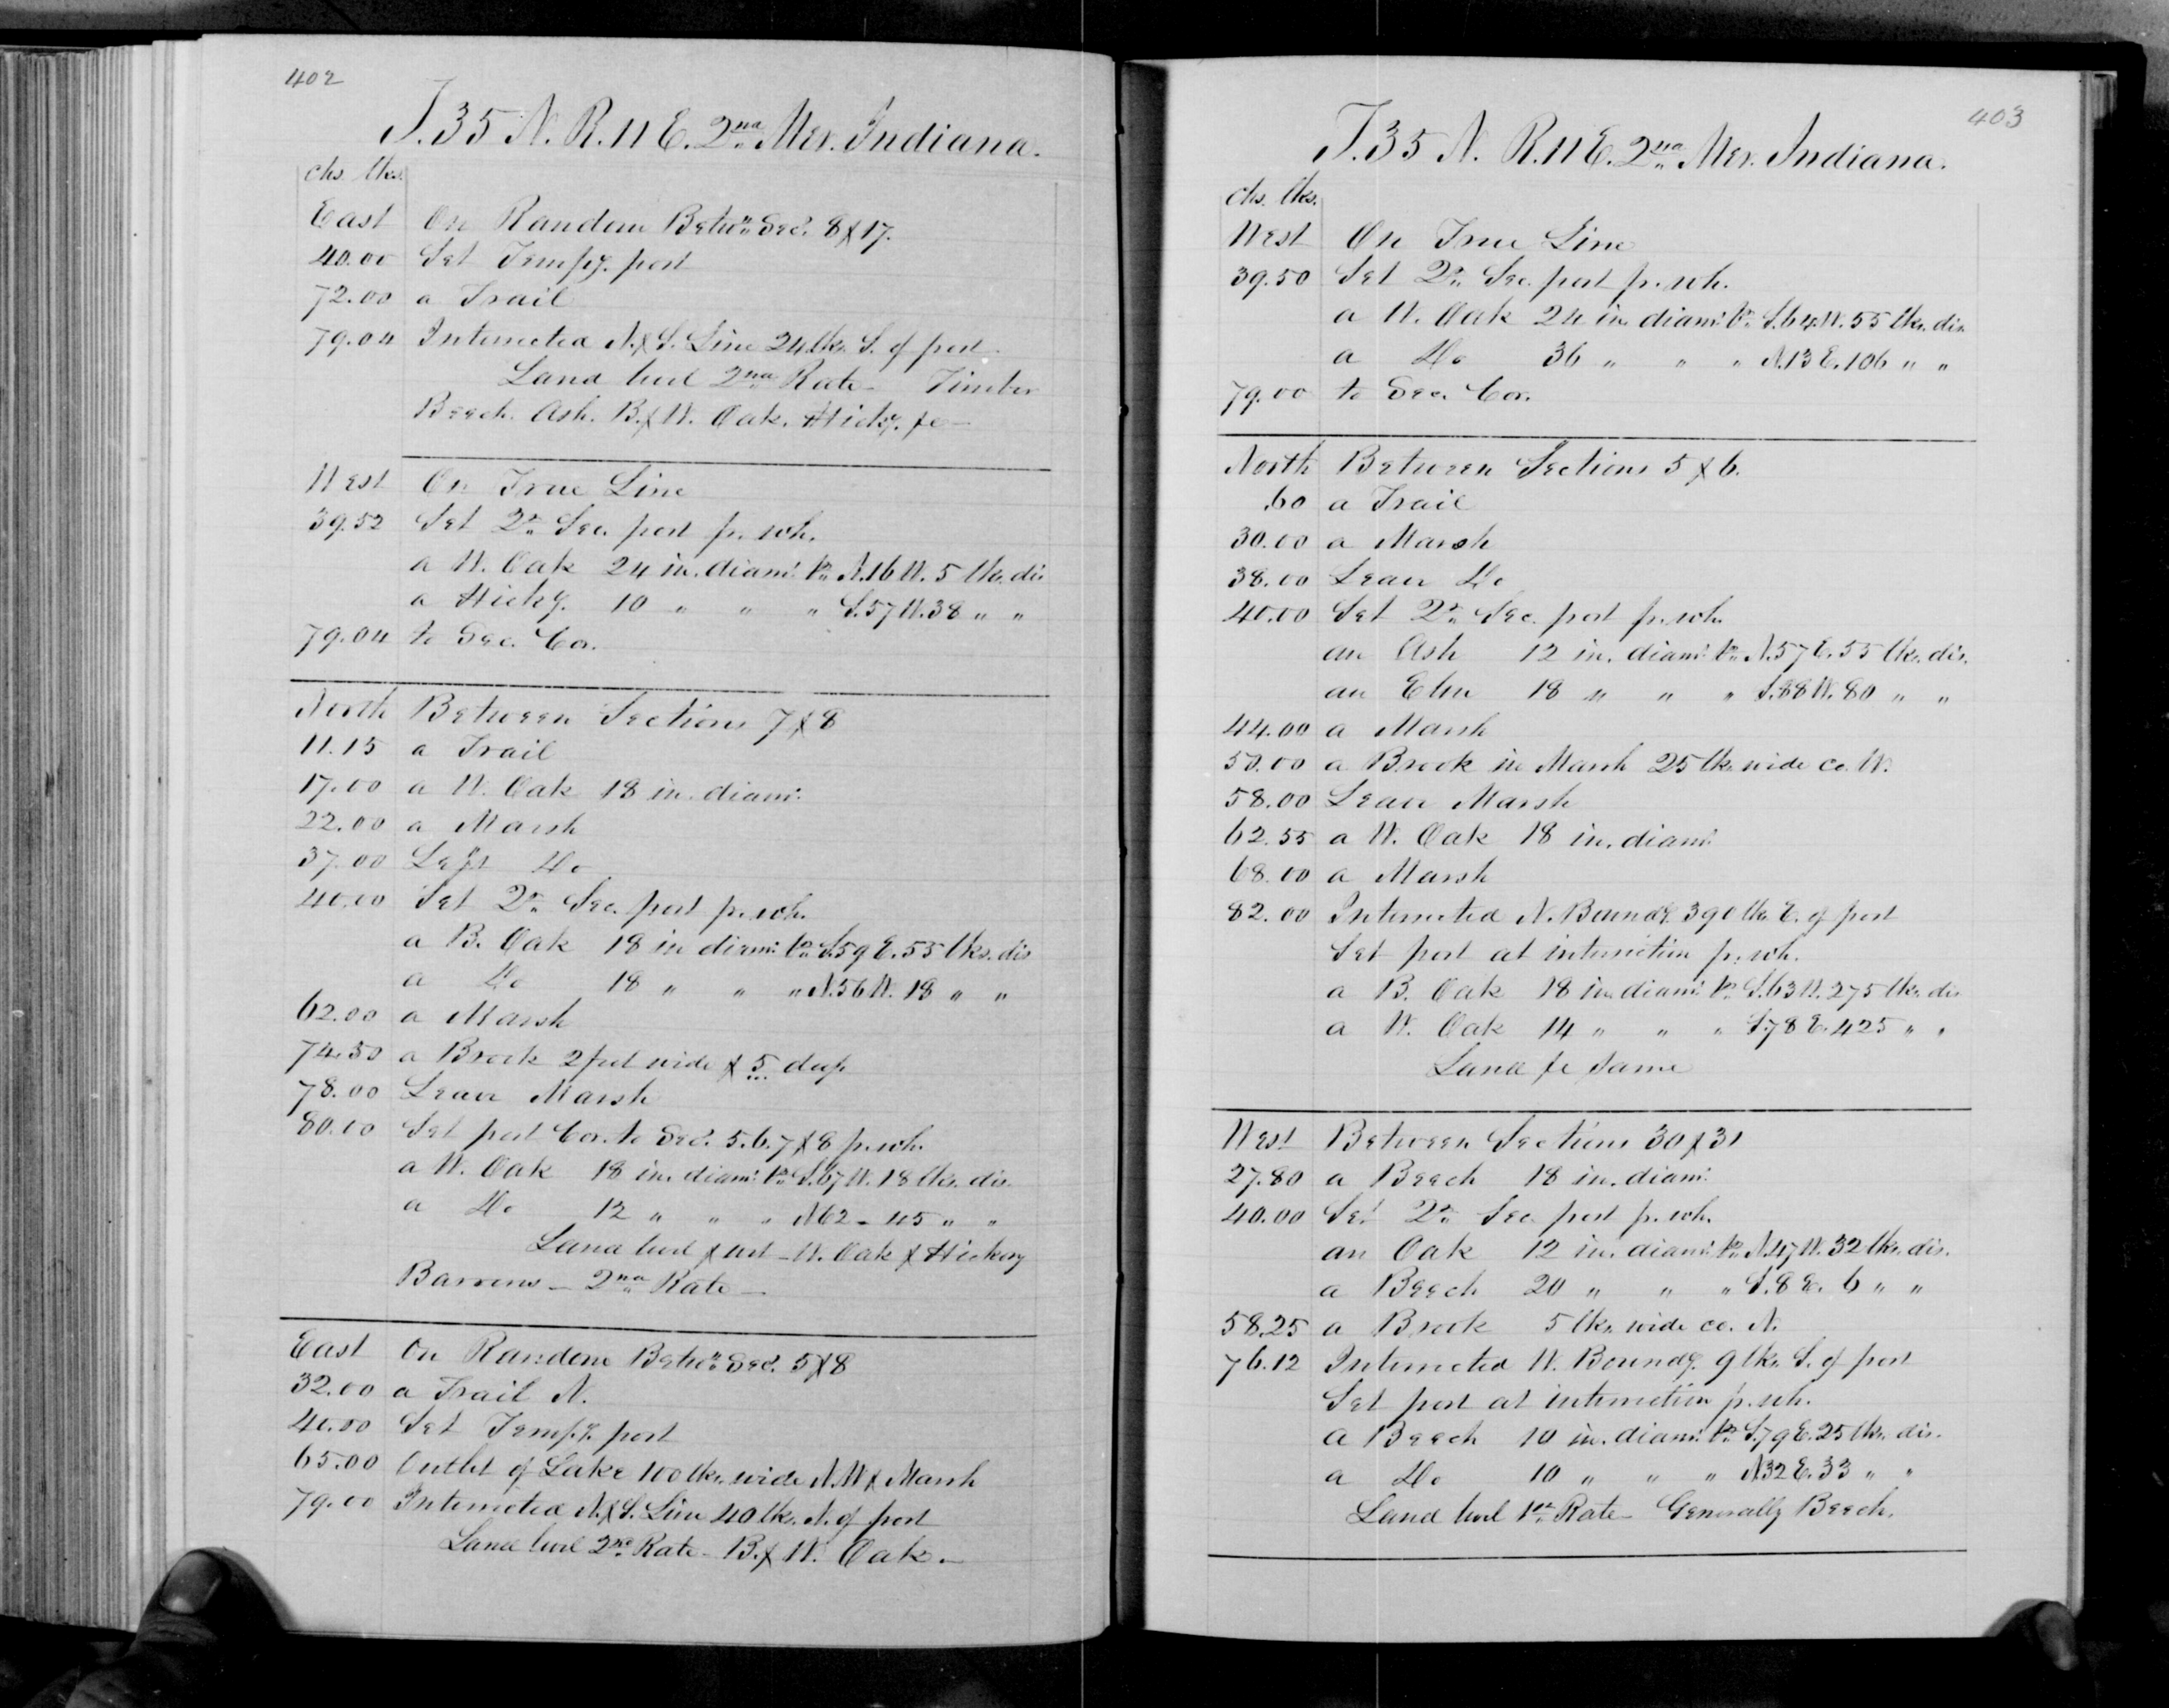 402
T. 35 N. R. 11 E. 2nd Mer. Indiana.
chs. lks.
East On Random Betwn. Secs. 8 & 17.
40.00 Set Tempy. post
72.00 a Trail
79.04 Intersected N. & S. Line 24 lks. S. of post.
Land level 2nd Rate - Timber
Beech. Ash. B. & W. Oak. Hicky. &c -
West On True Line
39.52 Set 2r. Sec. post fr. wh.
a W. Oak 24 in. diamr. br. N. 16 W. 5 lks. dis
a Hicky. 10 " " " S. 57 W. 38 " "
79.04 to Sec. Cor.
North Between Sections 7 & 8
11.15 a Trail
17.00 a W. Oak 18 in. diamr.
22.00 a Marsh
37.00 Left Do
40.00 Set 2r. Sec. post fr. wh.
a B. Oak 18 in diamr. br. S. 59 E. 55 lks. dis
a Do 18 " " " N. 56 W. 18 " "
62.00 a Marsh
74.50 a Brook 2 feet wide & 5 deep
78.00 Leave Marsh
80.00 Set post Cor. to Secs. 5. 6. 7 & 8 fr. wh.
a W. Oak 18 in. diamr. br. S. 67 W. 18 lks. dis.
a Do 12 " " " N 62 - 45 " "
Land level & wet - W. Oak & Hickory
Barrens - 2nd Rate -
East On Random Betwn. Secs. 5 & 8
32.00 a Trail N.
40.00 Set Tempy. post
65.00 Outlet of Lake 100 lks. wide N. W & Marsh
79.00 Intersected N. & S. Line 40 lks. N. of post
Land level 2nd Rate - B. & W. Oak. -
403
T. 35 N. R. 11 E. 2nd Mer. Indiana.
chs. lks.
West On True Line
39.50 Set 2r. Sec. post fr. wh.
a W. Oak 24 in. diamr. br. S. 64 W. 55 lks. dis
a Do 36 " " " N. 13 E. 106 " "
79.00 to Sec. Cor.
North Between Sections 5 & 6.
.60 a Trail
30.00 a Marsh
38.00 Leave Do
40.00 Set 2r. Sec. post fr. wh.
an Ash 12 in. diamr. br. N. 57 E. 55 lks. dis.
an Elm 18 " " " S. 88 W. 80 " "
44.00 a Marsh
50.00 a Brook in Marsh 25 lks wide co. W.
58.00 Leave Marsh
62.55 a W. Oak 18 in. diamr.
68.00 a Marsh
82.00 Intersected N. Boundy. 390 lks. E. of post
Set post at intersection fr. wh.
a B. Oak 18 in. diamr. br. S. 63 W. 275 lks. dis
a W. Oak 14 " " " S. 78 E. 425 " "
Land &c same
West Between Sections 30 & 31
27.80 a Beech 18 in. diamr.
40.00 Set 2r. Sec. post fr. wh.
an Oak 12 in. diamr. br. N. 47 W. 32 lks. dis.
a Beech 20 " " " S. 8 E. 6 " "
58.25 a Brook 5 lks. wide co. N.
76.12 Intersected W. Boundy. 9 lks. S. of post
Set post at intersection fr. wh.
a Beech 10 in. diamr. br. S. 79 E. 25 lks. dis.
a Do 10 " " " N. 32 E. 33 " "
Land level 1st Rate - Generally Beech.